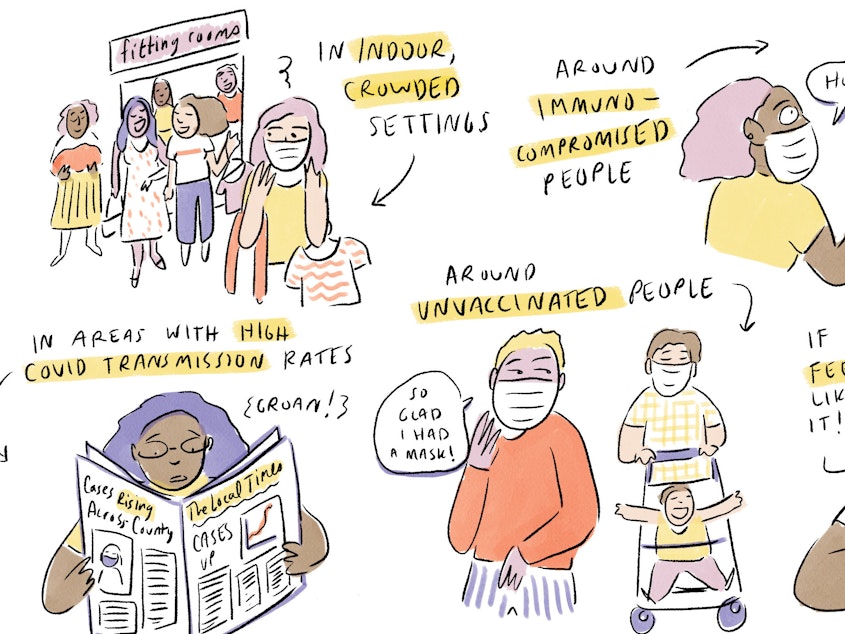 fitting rooms
IN INDOOR,
CROWDED
SETTINGS
AROUND
IMMUNO-
COMPROMISED
PEOPLE
AROUND
UNVACCINATED PEOPLE
SO
GLAD
I HAD
A MASK!
IN AREAS WITH HIGH
COVID TRANSMISSION RATES
{GROAN!}
Cases Rising
Across County
The Local Times
CASES
UP
IF
FEE
LIK
IT!